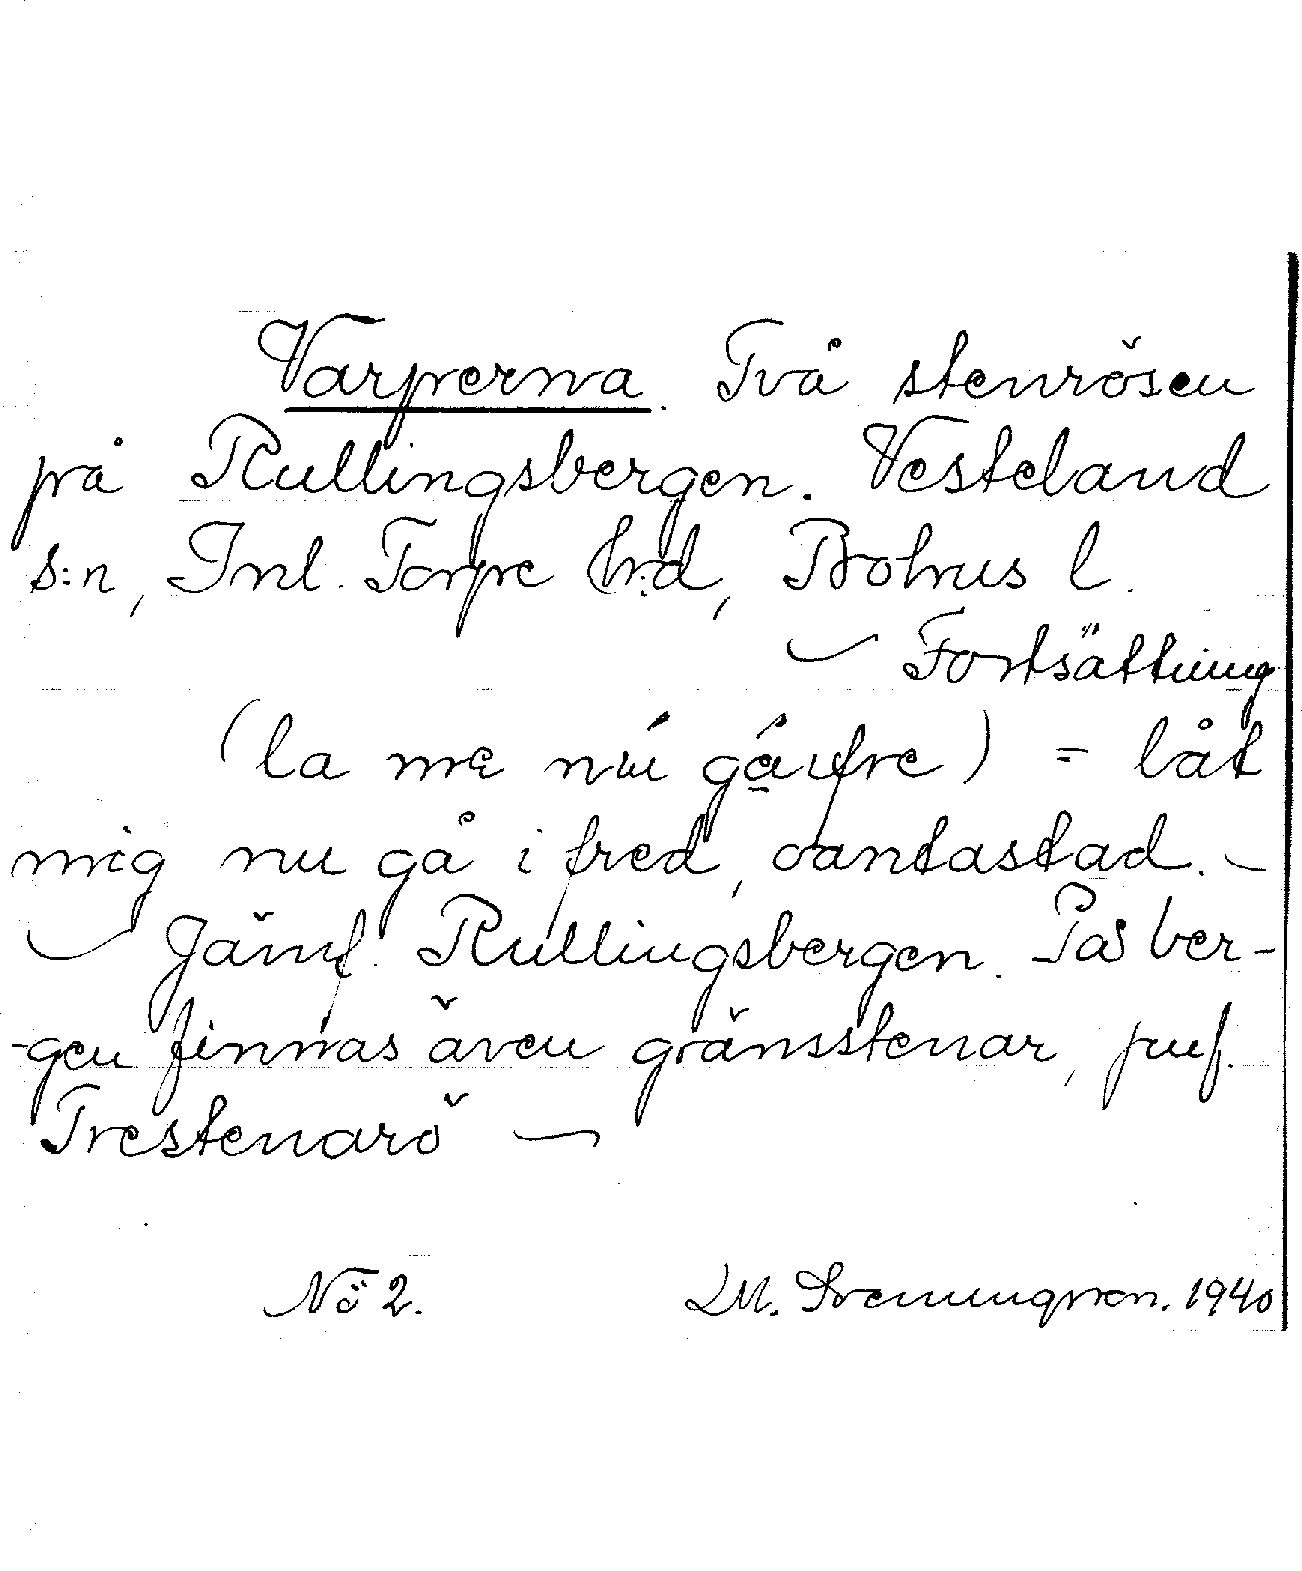 Varperna. Två stenrösen
på Rullingsbergen. Vesteland
s:n, Inl. Torpe hrd, Bohus l.
— Fortsättning
(la me nu gå i fre) = låt
mig nu gå i fred, oantastad. —
— Jämf. Rullingsbergen. På ber-
-gen finnas även gränsstenar, jmf.
Trestenarö —
No 2. M. 1940